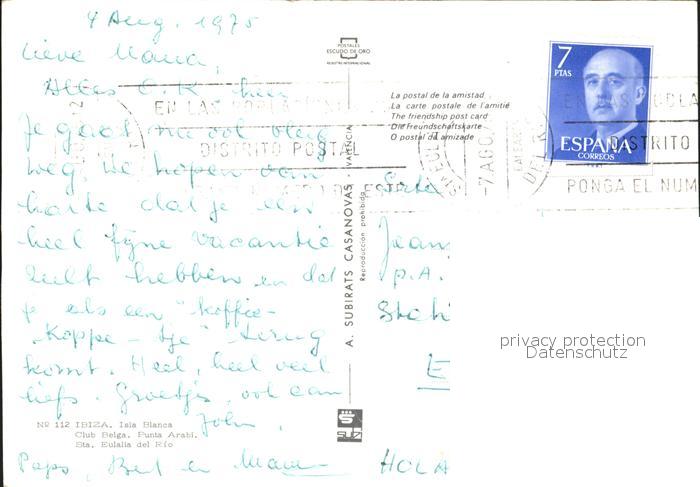 4 Aug. 1975
Lieve Mama,
Alles O.K. hier
Je gaat nu ook
weg. We hopen van
harte dat je een
heel fijne vacantie
zult hebben en dat
je als een "koffie-
koppe-tje" terug
komt. Heel, heel veel
liefs. Groetjes, ook aan
John,
Paps, Bert en Mama
Nº 112 IBIZA. Isla Blanca
Club Belga. Punta Arabí.
Sta. Eulalia del Río
POSTALES
ESCUDO DE ORO
REGISTRO INTERNACIONAL
A. SUBIRATS CASANOVAS - VALENCIA
Reproducción prohibida
La postal de la amistad
La carte postale de l'amitié
The friendship post card
Die Freundschaftskarte
O postal da amizade
EN LAS POBLACION
DISTRITO POSTAL
7 AGO.
DEL R
EN LAS POBLA
DISTRITO
PONGA EL NUM
7
PTAS
ESPAÑA
CORREOS
Jean
p.A.
E
HOLA
privacy protection
Datenschutz